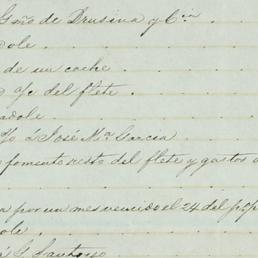 Goño de Drusina y Cia
dole
de un coche
Yo del flete
adole
Yo á José Ma Garcia
fomento resto del flete y gastos
por un mes vencido el 24 del ppo
ole
G. Santoyo